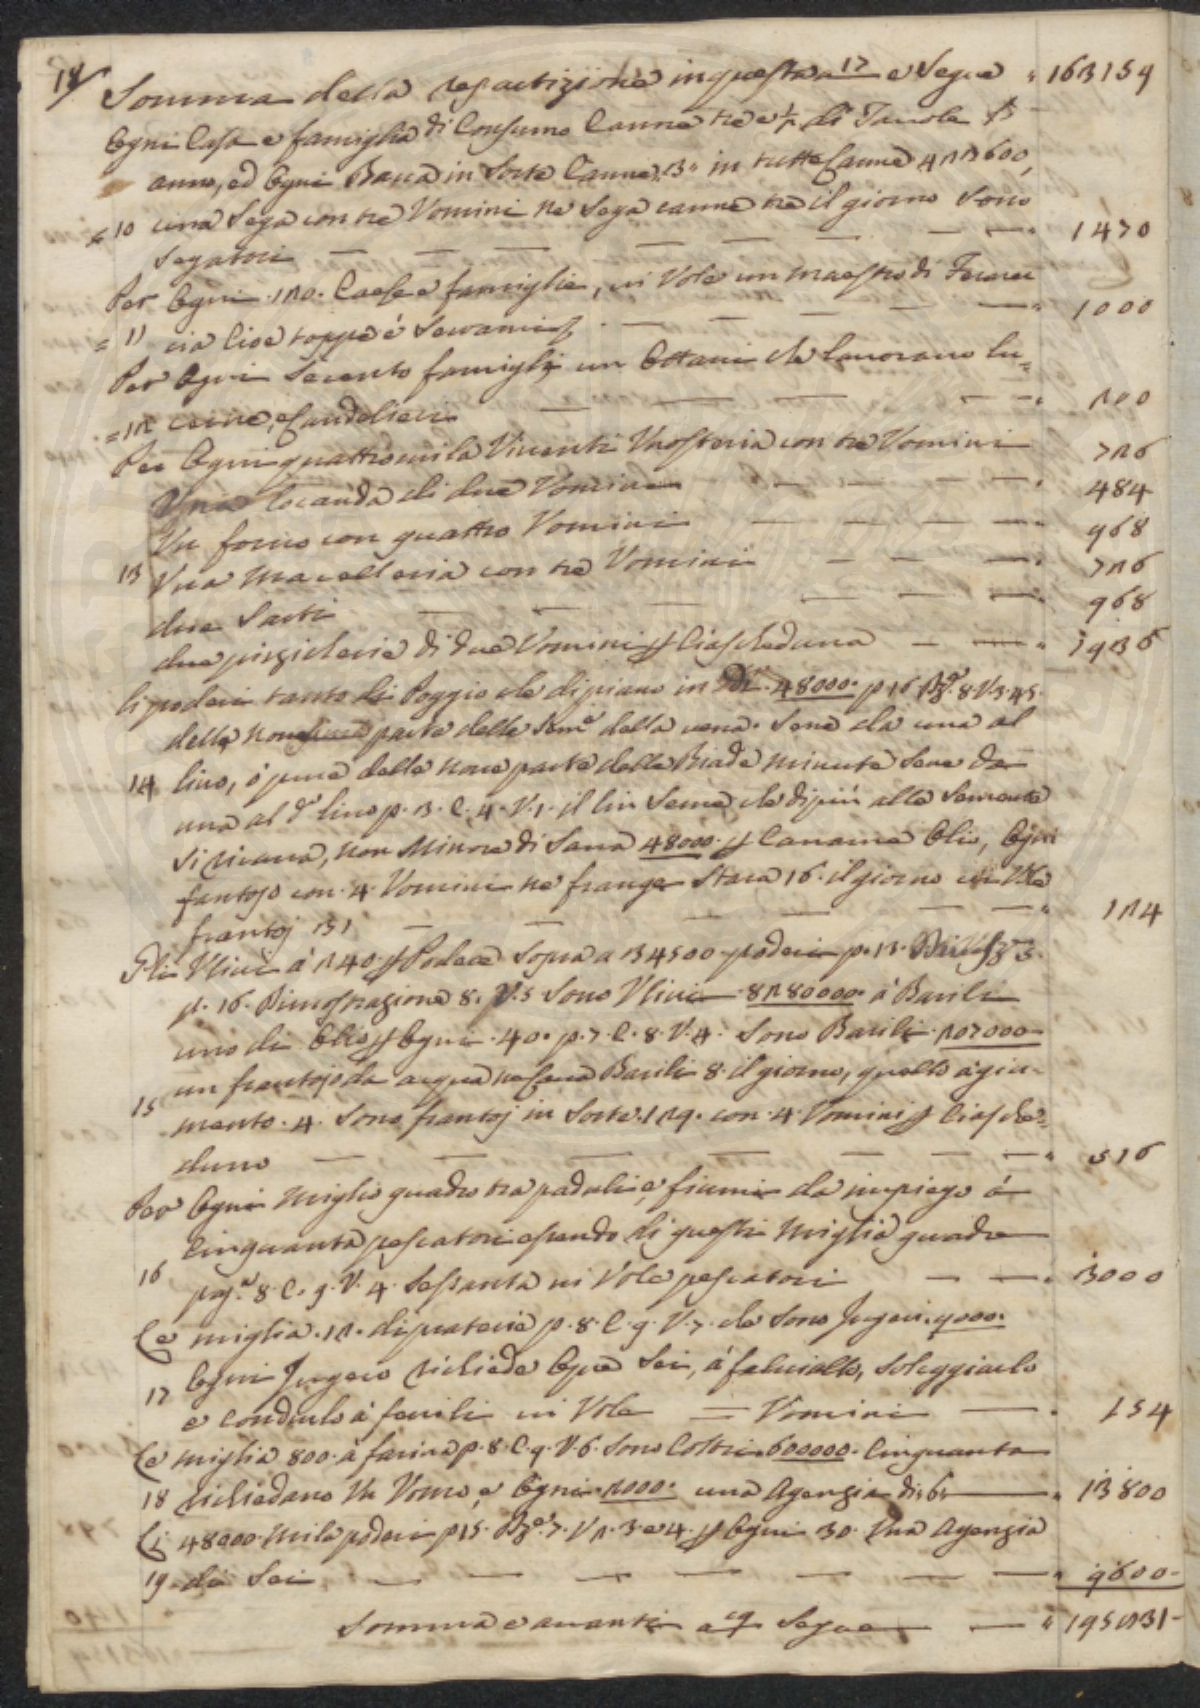 18 Somma della repartizione in questa a 17 e Segue " 163159
Ogni Casa e famiglia di Consumo Canne tre e 1/2 di Tavole
anno, ed Ogni Barca in Sorte Canne 3 in tutte Canne 422600,
= 10 una Sega con tre Vomini ne Sega canne tre il giorno Sono
Segatori — — — — — — — " 1470
Per Ogni 120. Case e famiglie, vi Vole un maestro di Ferarec
= 11 cia Cioe toppe é Serrami — — — — — " 1000
Per Ogni Secento famiglie un Ottani che lavorano lu=
= 12 cerne, e Candelieri — — — — — " 200
Per Ogni quattromila Viventi Vnosteria con tre Vomini 726
Vna locanda di due Vomini — — — — " 484
Vn forno con quattro Vomini — — — — " 968
13 Vna Macelleria con tre Vomini — — — " 726
due Sarti — — — — — — " 968
due pizicherie di due Vomini Ciascheduna — — " 1936
li poderi tanto di Poggio che di piano in 48000. p 16 8 V 345.
della parte delle Sem.e della vena. Sene da una al
14 lino, ó pure delle nove parte delle Biade minute Sene da
una al d.o lino p. 3. C. 4. V. 1. il lin Seme che di piú alle Semente
Si ricava, non Minore di Sarà 48000. Canane Olio, Ogni
fantojo con 4. Vomini ne frange Stara 16. il giorno vi Vole
frantoj 31 — — — — — " 124
Gli Vlivi á 240. Podere Sopra a 34500 poderi p. 13.
p. 16. Dimostrazione 8. V. 5 Sono Vlivi 8280000. á Barili
uno di Olio Ogni 40. p. 7. C. 8. V. 4. Sono Barili 207000
un frantojo da acqua ne farà Barili 8. il giorno, quello á giu=
15 mento. 4. Sono frantoj in Sorte 129. con 4. Vomini Ciasche=
duno — — — — — — — " 516
Per Ogni Miglio quadro tra paduli, e fiumi da impiego á
Cinquanta pescatori essendo di questi Miglia quadre
16 pag.a 8. C. 9. V. 4. Sessanta vi Vole pescatori — — " 3000
Le miglia. 12. di praterie p. 8. C. 9. V. 7. che Sono Jugeri. 9000.
17 Ogni Jugero richiede Opre Sei, á falciallo, Soleggiarlo
e condurlo á fenili vi Vole = Vomini — . 154
Le miglia 800. á farina p. 8. C. 9. V. 6. Sono Coltri. 600000. Cinquanta
18 richiedano Vn Vomo, e Ogni. 2000. una Agenzia di 6 — " 13800
Li 48000. Mila poderi p 15. 7. V 2. 3. e 4. Ogni 30. Vna Agenzia
19 di Sei — — — — — — — " 9600 -
Somma e avanti a 19 Segue — " 195231 -